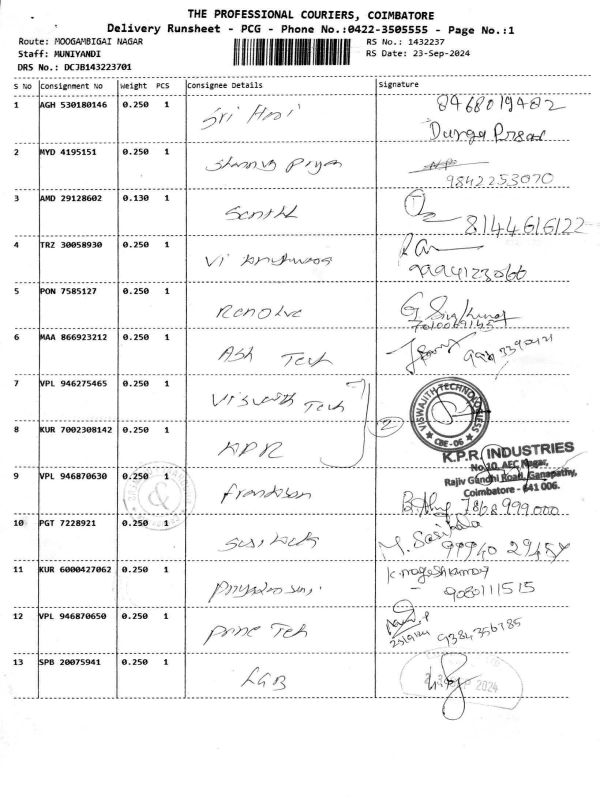 THE PROFESSIONAL COURIERS, COIMBATORE
Delivery Runsheet - PCG - Phone No.:0422-3505555 - Page No.:1
Route: MOOGAMBIGAI NAGAR
RS No.: 1432237
Staff: MUNIYANDI
RS Date: 23-Sep-2024
DRS No.: DCJB143223701
S No Consignment No Weight PCS Consignee Details Signature
1 AGH 530180146 0.250 1 Sri Hari 8468019482
Durga
2 MYD 4195151 0.250 1 Priya
9842253070
3 AMD 29128602 0.130 1
8144616122
4 TRZ 30058930 0.250 1 Vi
9994123066
5 PON 7585127 0.250 1 Renolve G
6 MAA 866923212 0.250 1 Ash Tech
7 VPL 946275465 0.250 1 Viswajith Tech
VISWAJITH TECHNOLOGIESS
CBE-06
2
8 KUR 7002308142 0.250 1 KPR
K.P.R. INDUSTRIES
No.10, AEC Nagar,
Rajiv Gandhi Road, Ganapathy,
Coimbatore - 641 006.
9 VPL 946870630 0.250 1 7868999000
10 PGT 7228921 0.250 1 M. Sasikala
99940 29454
11 KUR 6000427062 0.250 1 K. nageshkumar
9080111515
12 VPL 946870650 0.250 1 Prime Tech
9384356785
13 SPB 20075941 0.250 1 LGB
2024